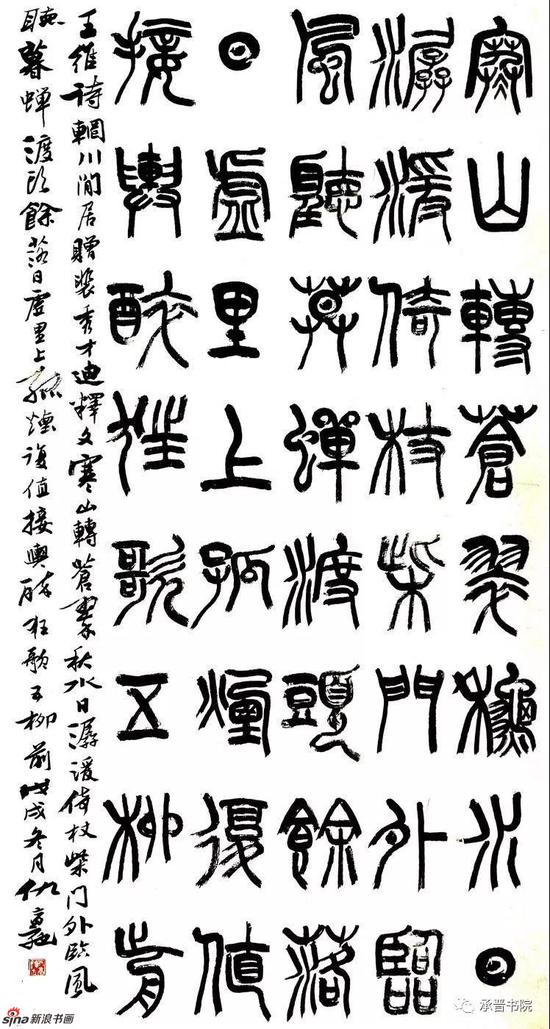 寒山轉蒼翠秋水日
潺湲倚杖柴門外臨
風聽暮蟬渡頭餘落
日虛里上孤煙復值
接輿醉狂歌五柳前
王維詩輞川閒居贈裴秀才迪釋文寒山轉蒼翠秋水日潺湲倚杖柴門外臨風
聽暮蟬渡頭餘落日虛里上孤煙復值接輿醉狂歌五柳前戊戌冬月仇
sina新浪书画
承晋书院